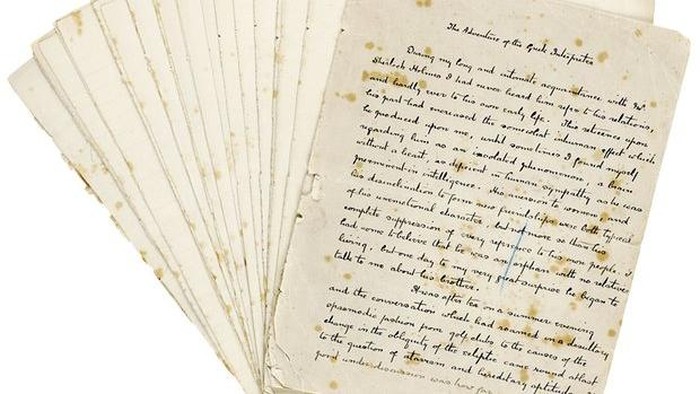 The Adventure of the Greek Interpreter
During my long and intimate acquaintance with Mr
Sherlock Holmes I had never heard him refer to his relations,
and hardly ever to his own early life. This reticence upon
his part had increased the somewhat inhuman effect which
he produced upon me, until sometimes I found myself
regarding him as an isolated phenomenon, a brain
without a heart, as deficient in human sympathy as he was
preeminent in intelligence. His aversion to women and
his disinclination to form new friendships were both typical
of his unemotional character, but not more so than his
complete suppression of every reference to his own people. I
had come to believe that he was an orphan with no relatives
living, but one day to my very great surprise he began to
talk to me about his brother.
It was after tea on a summer evening
and the conversation which had roamed in a desultory
spasmodic fashion from golf clubs to the causes of the
change in the obliquity of the ecliptic came round at last
to the question of atavism and hereditary aptitudes.
point under discussion was how far